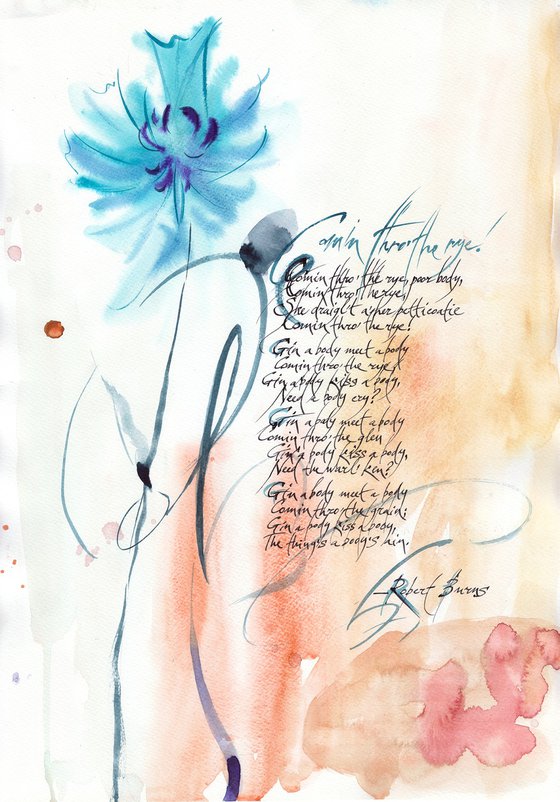 Comin thro' the rye!
Comin thro' the rye, poor body,
Comin thro' the rye,
She draiglt a' her petticoatie
Comin thro' the rye!
Gin a body meet a body
Comin thro' the rye,
Gin a body kiss a body,
Need a body cry?
Gin a body meet a body
Comin thro' the glen
Gin a body kiss a body,
Need the warl' ken?
Gin a body meet a body
Comin thro' the grain;
Gin a body kiss a body,
The thing's a body's ain.
—Robert Burns